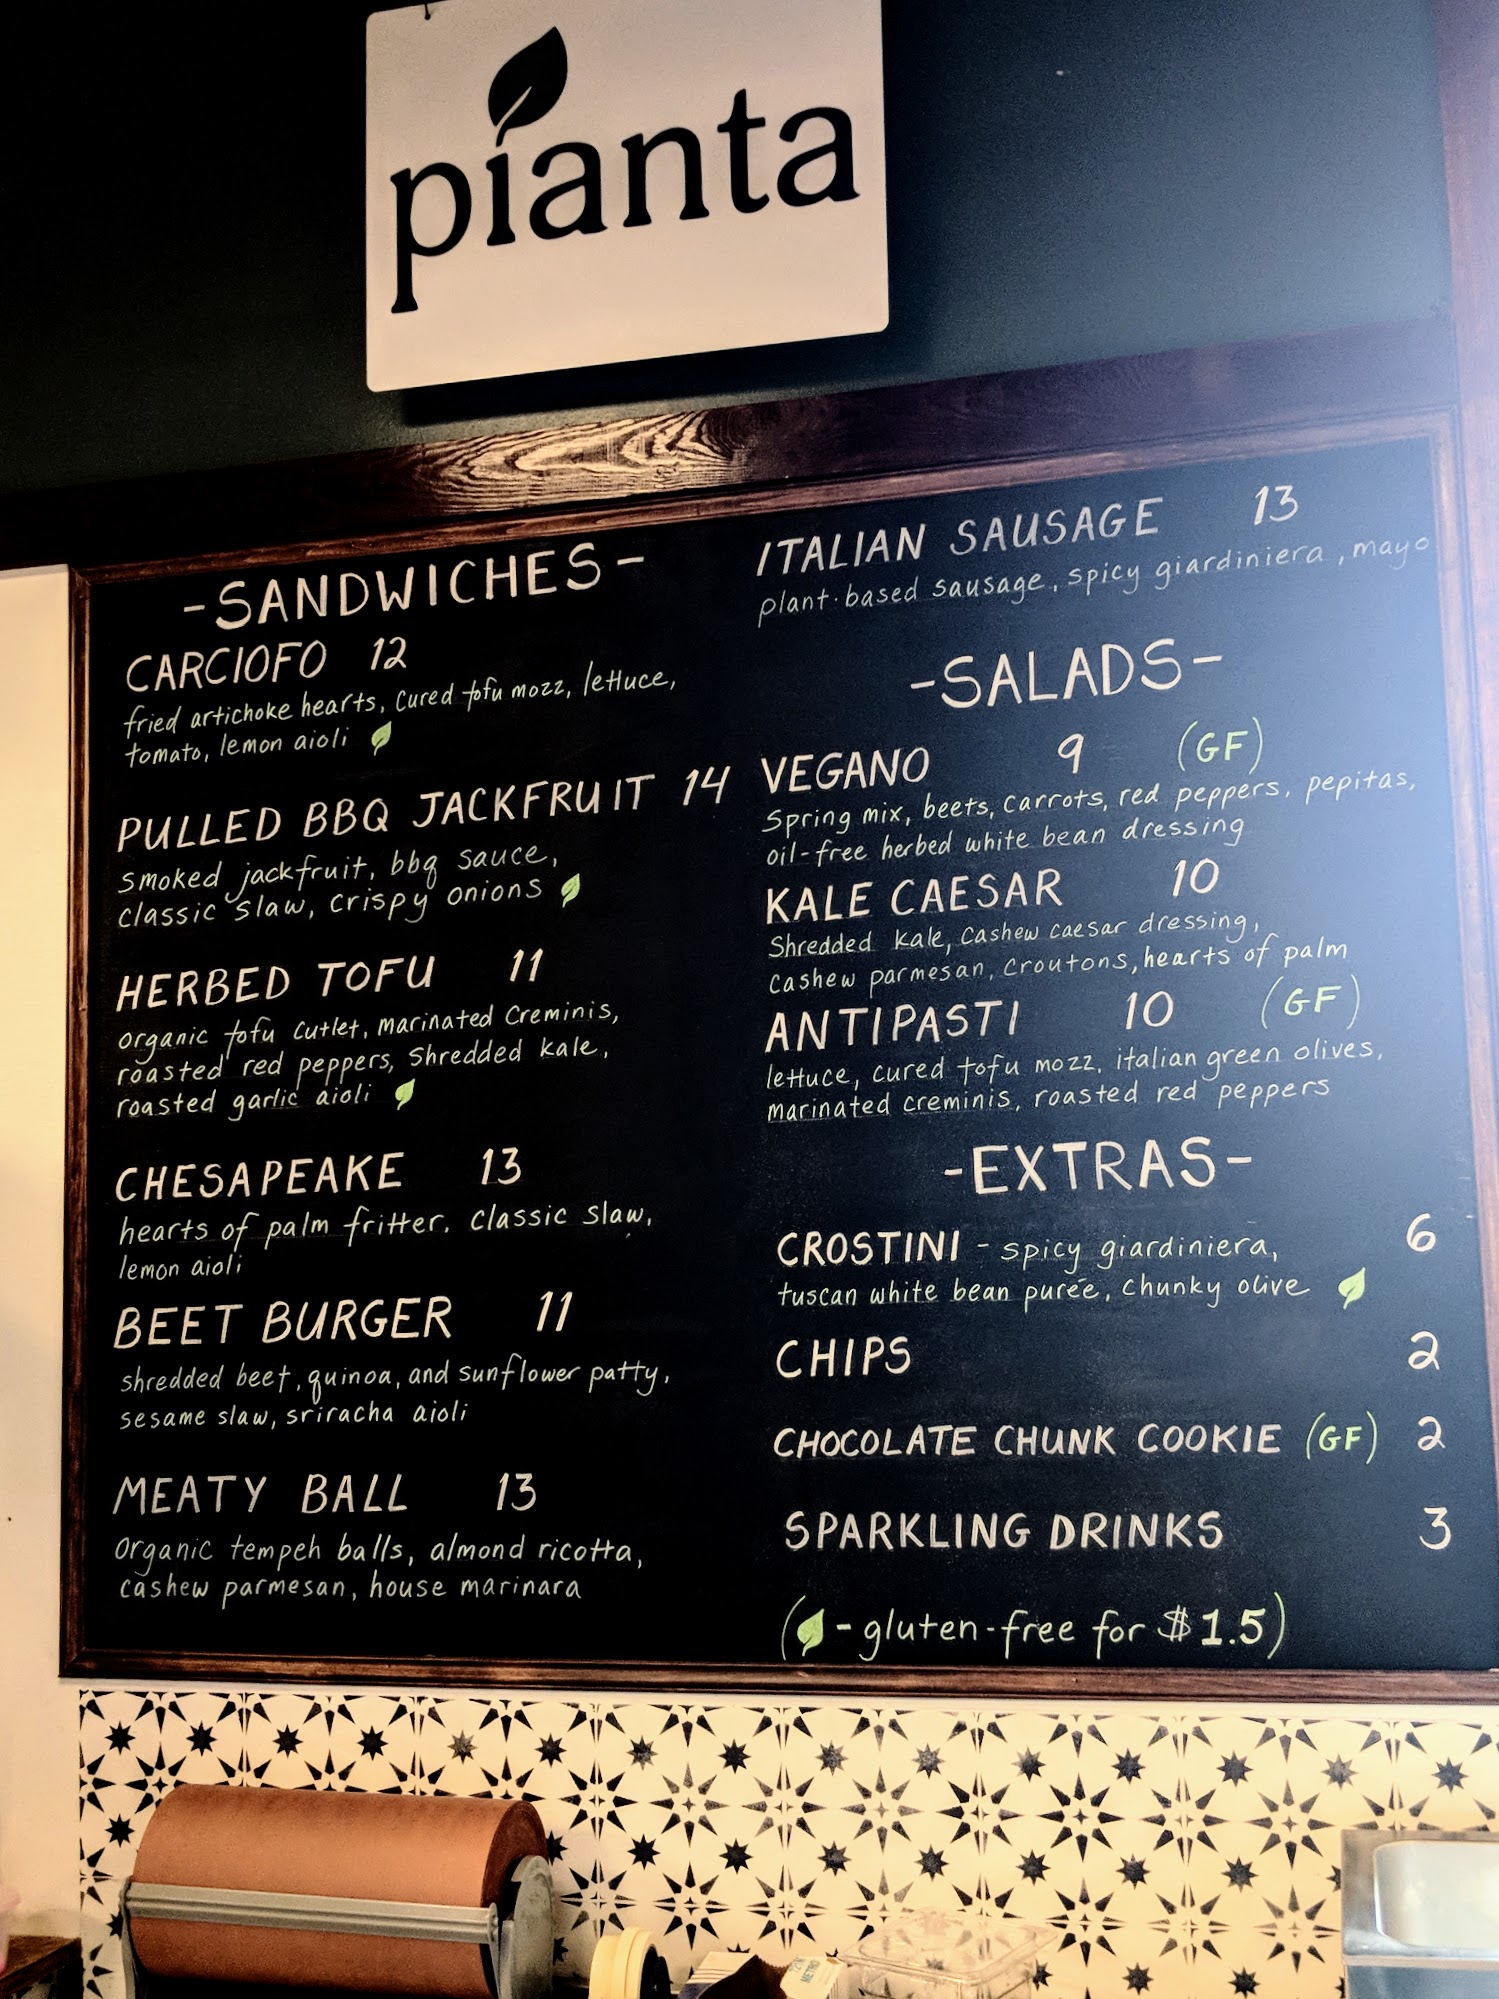 pianta
-SANDWICHES-
CARCIOFO 12
fried artichoke hearts, cured tofu mozz, lettuce,
tomato, lemon aioli
PULLED BBQ JACKFRUIT 14
smoked jackfruit, bbq sauce,
classic slaw, crispy onions
HERBED TOFU 11
organic tofu cutlet, marinated creminis,
roasted red peppers, shredded kale,
roasted garlic aioli
CHESAPEAKE 13
hearts of palm fritter, classic slaw,
lemon aioli
BEET BURGER 11
shredded beet, quinoa, and sunflower patty,
sesame slaw, sriracha aioli
MEATY BALL 13
organic tempeh balls, almond ricotta,
cashew parmesan, house marinara
ITALIAN SAUSAGE 13
plant-based sausage, spicy giardiniera, mayo
-SALADS-
VEGANO 9 (GF)
Spring mix, beets, carrots, red peppers, pepitas,
oil-free herbed white bean dressing
KALE CAESAR 10
Shredded kale, cashew caesar dressing,
cashew parmesan, croutons, hearts of palm
ANTIPASTI 10 (GF)
lettuce, cured tofu mozz, italian green olives,
marinated creminis, roasted red peppers
-EXTRAS-
CROSTINI - spicy giardiniera, 6
tuscan white bean purée, chunky olive
CHIPS 2
CHOCOLATE CHUNK COOKIE (GF) 2
SPARKLING DRINKS 3
( - gluten-free for $1.5)
METRO